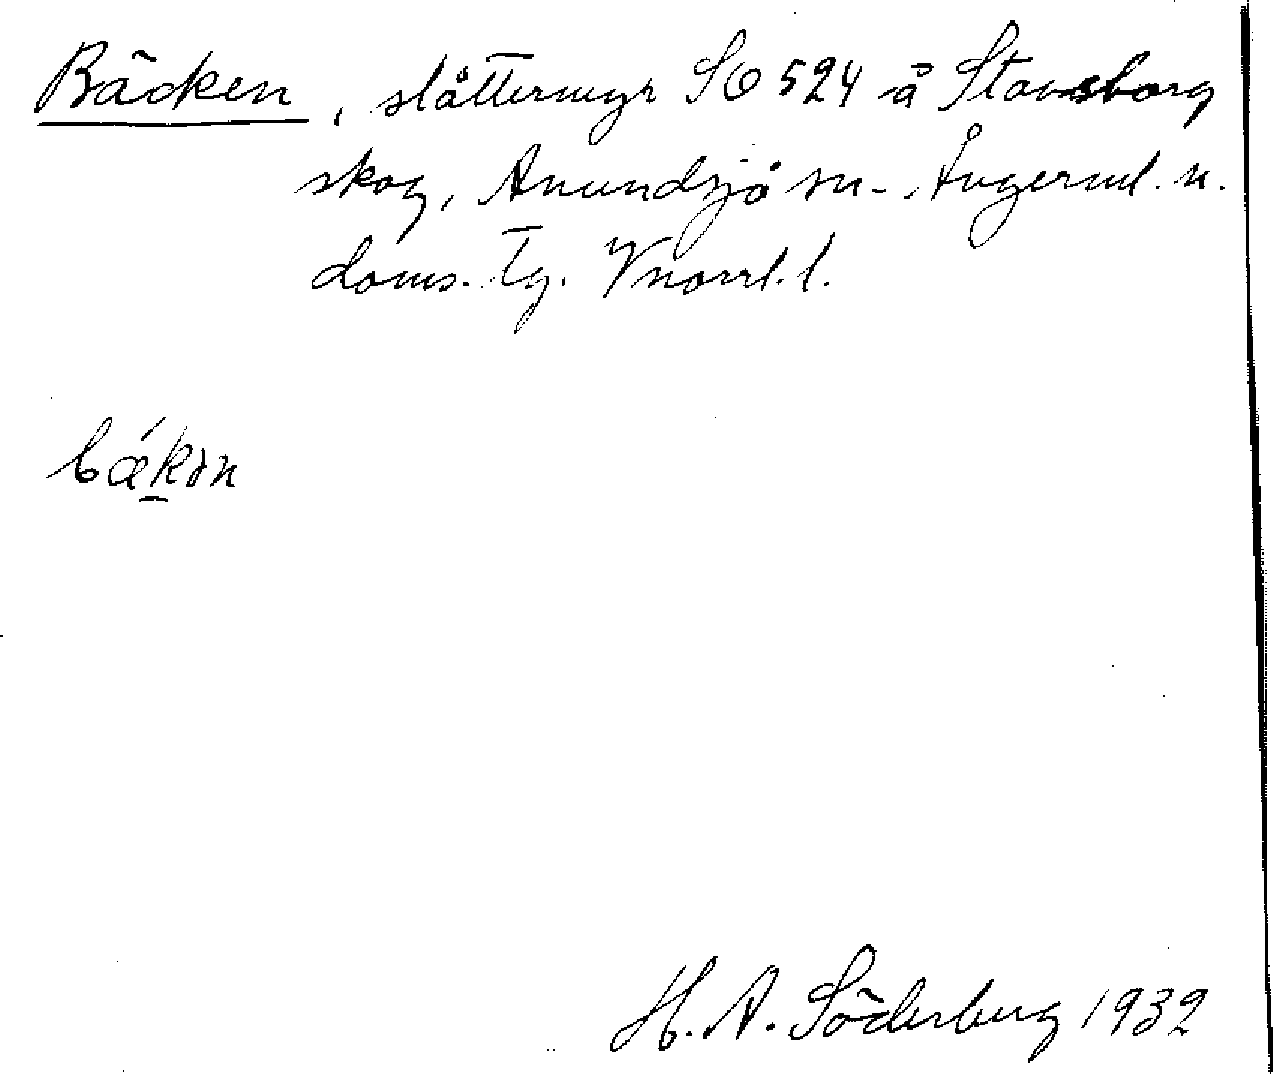 Bäcken, slåttermyr SO 524 å Stavsborg
skog, Anundsjö sn. Ångerml. n.
doms. Tg. Vnorrl. l.
bǽk̲ən
H. A. Söderberg 1932